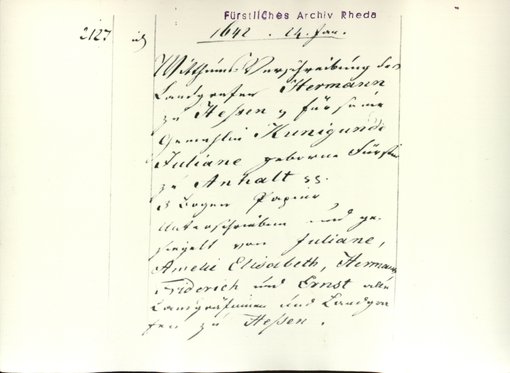 Fürstliches Archiv Rheda
2127
1642. 14. Jan.
Witthums Verschreibung des
Landgrafen Hermann
zu Hessen für seine
Gemahlin Kunigunde
Juliane geborne Fürstin
zu Anhalt
3 Bogen Papier
Unterschrieben und ge-
siegelt von Juliane,
Amelie Elisabeth, Hermann,
Friderich und Ernst alle
Landgräfinnen und Landgra
fen zu Hessen.